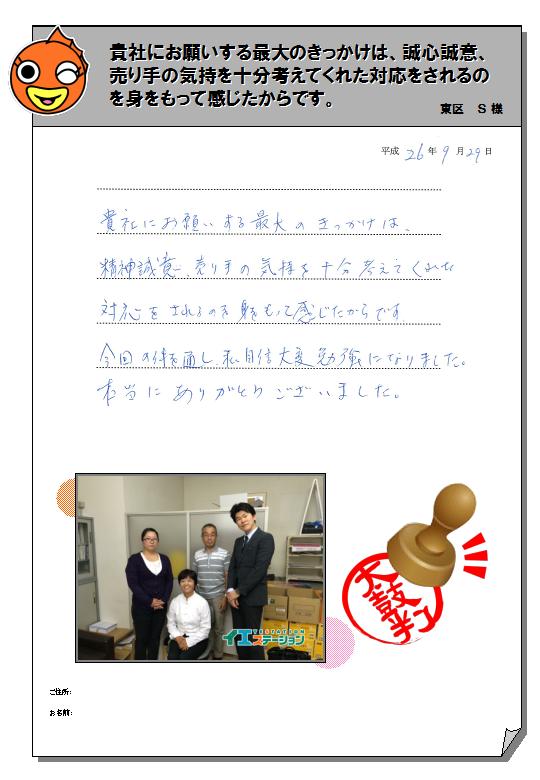 貴社にお願いする最大のきっかけは、誠心誠意、
売り手の気持を十分考えてくれた対応をされるの
を身をもって感じたからです。
東区 S様
平成 26年 9月 29日
貴社にお願いする最大のきっかけは、
精神誠意、売り手の気持を十分考えてくれた
対応をされるのを身をもって感じたからです
今回の件を通し、私自信大変勉強になりました。
本当にありがとうございました。
YESTATION
イエステーション
太鼓判
ご住所:
お名前: